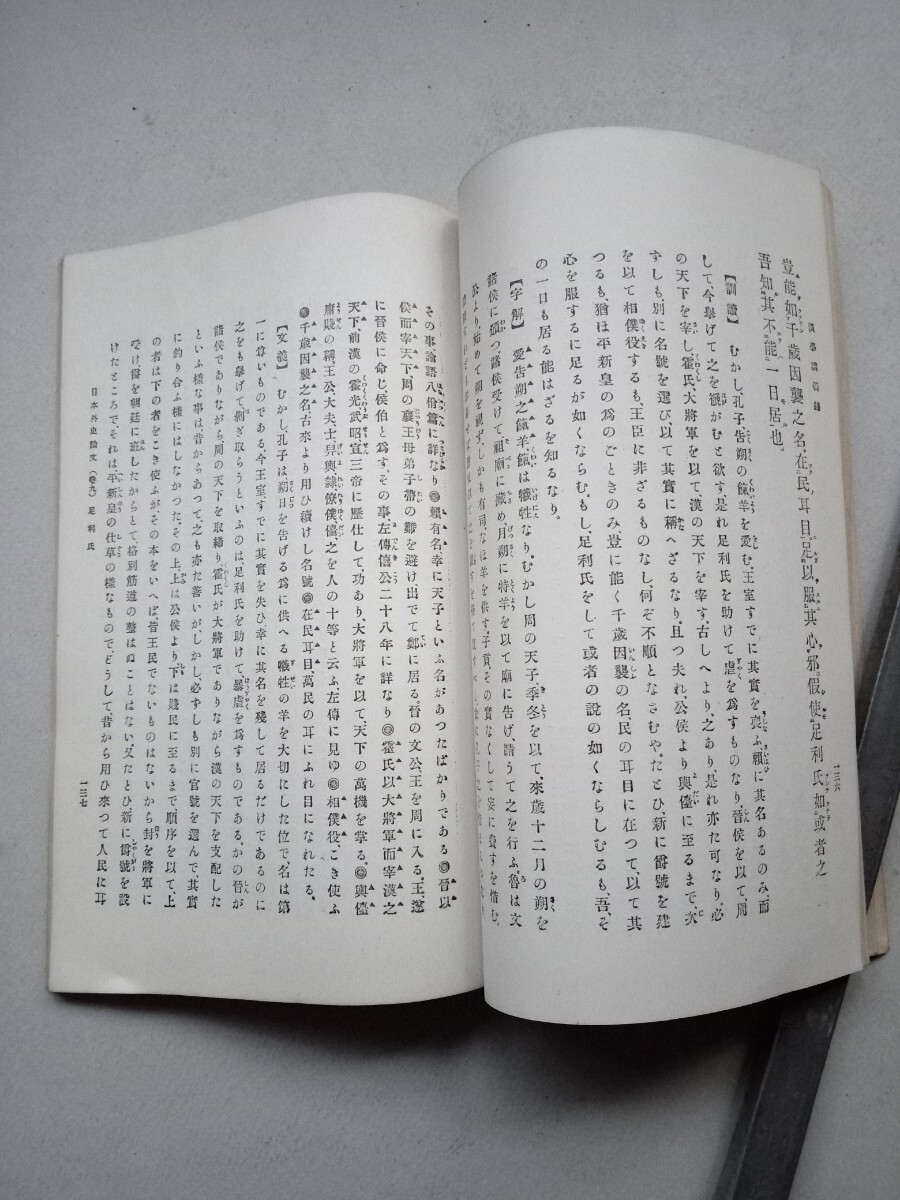 豈能如千歲因襲之名、在民耳目、足以服其心邪。假使足利氏如或者之
吾知其不能一日居也。
【訓讀】 むかし、孔子、告朔の餼羊を愛む、王室すでに其實を喪ふ、賴に其名あるのみ、而
して、今擧げて之を褫がむと欲す、是れ足利氏を助けて虐を爲すものなり、晉侯を以て、周
の天下を宰し、霍氏、大將軍を以て、漢の天下を宰す、古しへより、之あり、是れ亦た可なり、必
ずしも、別に名號を選び以て其實に稱へざるなり、且つ夫れ、公侯より輿儓に至るまで、次
を以て相僕役するも、王臣に非ざるものなし、何ぞ不順となさむや。たとひ、新に爵號を建
つるも、猶ほ平新皇の爲のごときのみ豈に能く千歲因襲の名、民の耳目に在つて、以て其
心を服するに足るが如くならむ。もし、足利氏をして或者の說の如くならしむるも、吾、そ
の一日も居る能はざるを知るなり。
【字解】 愛告朔之餼羊餼は犧牲なり。むかし周の天子、季冬を以て、來歲十二月の朔を
諸侯に頒つ諸侯受けて祖廟に藏め月朔に特羊を以て廟に告げ、請うて之を行ふ、魯は文
公より、始めて朔を視ず、しかも有司、なほ羊を供す、子貢、その實なくして妄に費すを惜む、
その事論語八佾篇に詳なり◎賴有名幸に天子といふ名があつたばかりである◎晉以
侯而宰天下周の襄王母弟子帶の難を避け出でて鄭に居る。晉の文公、王を周に入る。王、遂
に晉侯に命じ、侯伯と爲す。その事左傳僖公二十八年に詳なり◎霍氏以大將軍而宰漢之
天下、前漢の霍光武昭宣三帝に歷仕して功あり、大將軍を以て、天下の萬機を掌る。◎輿儓
庸賤の稱、王公大夫士皁輿隸僚僕儓之を人の十等と云ふ、左傳に見ゆ◎相僕役、こき使ふ
◎千歲因襲之名、古來より用ひ續けし名號◎在民耳目萬民の耳にふれ目になれたる。
【文義】 むかし、孔子は朔日を告げる爲に供へる犧牲の羊を大切にした位で、名は第
一に尊いものである今王室すでに其實を失ひ幸に其名を殘して居るだけであるのに
之をも擧げて剝ぎ取らうといふのは、足利氏を助けて暴虐を爲すものである。かの晉が
諸侯でありながら、周の天下を取締り、霍氏が大將軍でありながら漢の天下を支配した
といふ樣な事は、昔からあつて、之も亦た善いが、しかし、必ずしも別に官號を選んで、其實
に釣り合ふ樣にはしなかつた。その上、上は公侯より下は賤民に至るまで、順序を以て、上
の者は下の者をこき使ふが、その本をいへば、皆王民でないものはないから封を將軍に
受け爵を朝廷に班したからとて、格別筋道の整はぬことはない又たとひ、新に爵號を設
けたところで、それは、平新皇の仕草の樣なもので、どうして昔から用ひ來つて人民に耳
日本外史論文(卷九) 足利氏
一三六
一三七